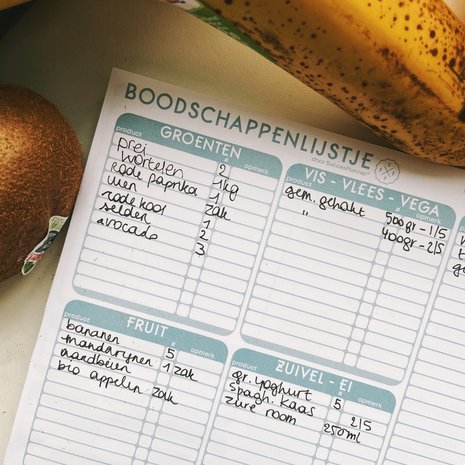 BOODSCHAPPENLIJSTJE
door SuccesPlanner
GROENTEN
product # opmerk.
prei 2
wortelen 1kg
rode paprika 1
uien zak
rode kool 1
selderij 2
avocado 3
VIS - VLEES - VEGA
product # opmerk.
gem. gehakt 500gr - 1/5
" 400gr - 2/5
FRUIT
product # opmerk.
bananen 5
mandarijnen 1 zak
aardbeien
bio appelen zak
ZUIVEL - EI
product # opmerk.
gr. yoghurt 5
spagh. kaas 2/5
zure room 250ml